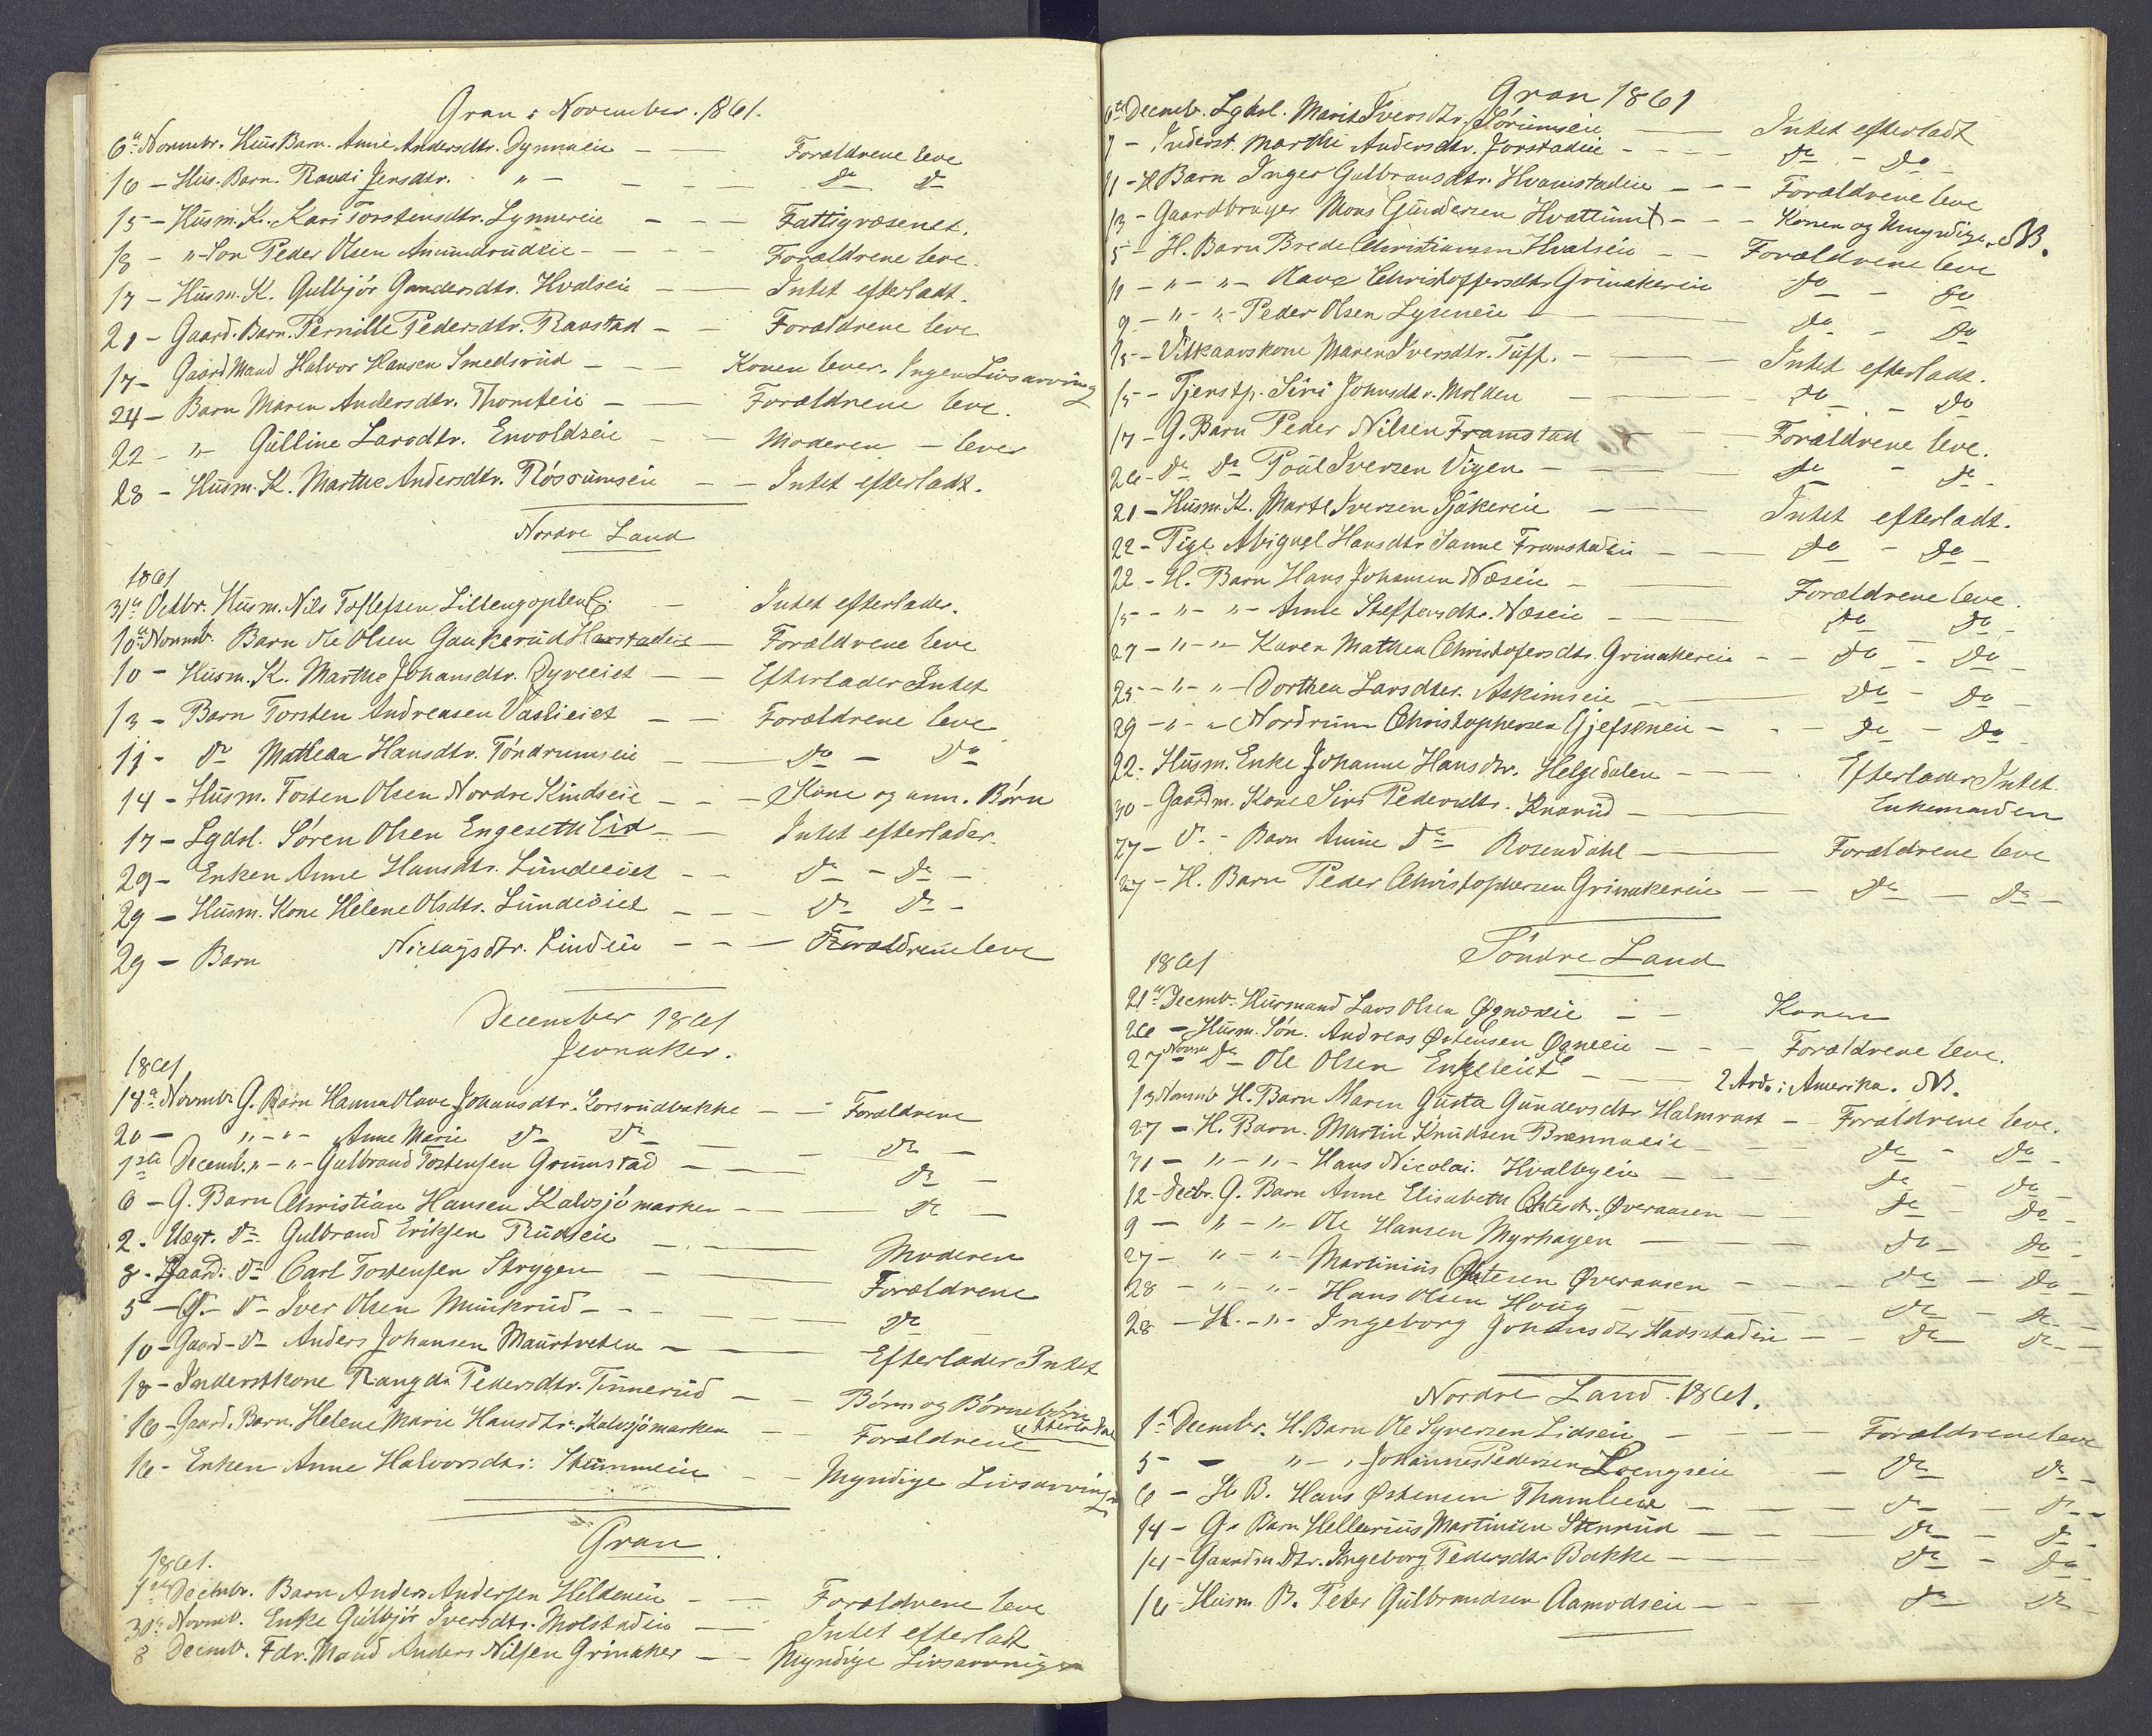 Gran i November. 1861.
6te Novembr. Huus Barn. Anne Andersdtr. Dynnaeie - — Forældrene leve
16 - Hus. Barn. Randi Jensdtr. " - - - — do do
15 - Husm. K. Kari Torstensdtr. Lynnereie - - — Fattigvæsenet.
18 - " Søn Peder Olsen Amundrudeie - - - Forældrene leve.
17 - Husm. K. Gulbjør Gundersdtr. Hvalseie - — Intet efterladt.
21 - Gaard. Barn. Pernille Pedersdtr. Raastad - - Forældrene leve
17 - Gaard Mand Halvor Hansen Smedsrud - - - Konen lever. Ingen Livsarving
24 - Barn Maren Andersdtr. Thomteie - — Forældrene leve.
22 - " Gulline Larsdtr. Envoldseie - - Moderen - lever
28 - Husm. K. Marthe Andersdtr. Røssumseie - - Intet efterladt.
Nordre Land
1861
31te Octbr. Husm. Nils Tollefsen Lillengoplen - Intet efterlader.
10de Novmb. Barn Ole Olsen Gaukerud - Forældrene leve
10 - Husm. K. Marthe Johansdtr. - - Efterlader Intet
13 - Barn Torsten AndreasenВаslieiet - - Forældrene leve
11 - do Mathea Hansdtr. Tøndrumseie - — do - do
14 - Husm. Tosten Olsen Nordre Kindseie - - - Kone og um. Børn
17 - Lgdsl. Søren Olsen Engeseth Eid - — Intet efterlader.
29 - Enken Anne Hansdtr. Lundeeiet - - do - do -
29 - Husm. Kone Helene Olsdtr. Lundeeiet - - - do do -
29 - Barn Nicolaysdtr. Lundeie - - — Forældrene leve
December 1861
Jevnaker.
1861
18de Novmbr G. Barn Hanna Olave Johansdtr. - — Forældrene
20 - " - " - Anne Marie do do - - do -
1ste Decemb. " - " - Gulbrand Tostensen Grumstad - — do -
6 - G. Barn Christian Hansen Kalvsjømarken - - — do -
2 - Uægt. do Gulbrand Eriksen Rudseie - - — Moderen
8 - Gaard. do Carl Tostensen Strygen - — Forældrene
5 - G. - do Iver Olsen Munkrud - - - — do -
10 - Gaard - do Anders Johansen Maurtveten - — Efterlader Intet
18 - Inderstkone Rangdi Pedersdtr. Tinnerud - - Børn og Børnebørn efterladne
16 - Gaard. Barn. Helene Marie Hansdtr. Kalvsjømarken - - Forældrene
16 - Enken Anne Halvorsdtr. Stummeie - - Myndige Livsarvinger
Gran
1861.
1ste Decmbr. Barn Anders Andersen Hildeneie - - Forældrene leve
30te Novmb. Enke Gulbjør Iversdtr. Molstadeie - — Intet efterladt
8 Decmb. Fdr. Mand Anders Nilsen Grinaker - - Myndige Livsarvinger
Gran 1861
6te Decemb. Lgdsl. Marit Iversdtr. Sørumseie — Intet efterladt
7 - Inderst. Marthe Andersdtr. Jorstadeie - - - do - do
11 - H Barn Inger Gulbransdtr. Hvamstadeie - - - Forældrene leve
13 - Gaardbruger Mons Gundersen Hvattum - - - Konen og Umyndige. NB.
5 - H. Barn Brede Christiansen Hvalseie - - Forældrene leve
11 - " - " - Olava Christoffersdtr Grinakereie do - do
9 - " - " - Peder Olsen Lyseneie — do - do
18 - Vilkaarskone Maren Iversdtr. Tuff. - — Intet efterladt.
15 - Tjenstp. Siri Johnsdtr. Molden - — do - do
17 - G. Barn Peder Nilsen Framstad - - Forældrene leve.
26 - do do Poul Iversen Vigen - — do - do
21 - Husm. K. Marte Iversen Sjükereie - - Intet efterladt.
22 - Pige Abigael Hansdtr Sanne Framstadeie - — do - do
22 - H. Barn Hans Johansen Næseie - — Forældrene leve.
15 - " - " - Anne Steffensdtr. Næseie - — do do
27 - " - " - Karen Mathea Christofersdtr. Grinakereie - - do - do
25 - " - " - Dorthea Larsdter. Askimseie - — do - do
29 - " - " - Nordrum Christophersen Gjefseneie - - - do - do
22 - Husm. Enke Johanne Hansdtr. Helgedalen - - - Efterlader Intet.
30 - Gaardm. Kone Siri Pedersdtr. Knarud - — Enkemanden
27 - do - Barn Anne do Rosendahl - — Forældrene leve
27 - H. Barn Peder Christophersen Grinakereie - - do - do
Søndre Land
1861
21de Decmb. Husmand Lars Olsen - - Konen
26 - Husm. Søn. Andreas Østensen - - - Forældrene leve.
27 Novm do Ole Olsen - — 2 Ard. i Amerika. NB.
13 Novmb H. Barn Maren Gusta Gundersdtr Halmrast - - Forældrene leve.
27 - H. Barn. Martin Knudsen Brænnaeie - — do - do
31 - " - " - Hans Nicolai. Hvalbyeie - — do - do
12 - Decbr. G. Barn Anne Elisabeth Øveraasen - — do - do
9 - " - " - Ole Hansen Myrhagen — do - do
27 - " - " - Martinius Øveraasen - — do - do
28 - " - " - Hans Olsen Houg — do - do
28 - H. - " - Ingeborg Johansdtr Haarstadeie - - do do
Nordre Land. 1861.
1ste Decembr. H. Barn Ole Syversen Lidseie - - - Forældrene leve
5 - - " - " Johannes Pedersen Loengseie - do do -
6 - H B. Hans Østensen - — do - do
14 - G. Barn Hellerius Martinsen Stenrud - — do - do
14 - Gaardm Dtr. Ingeborg Pedersdtr Bakke - — do - do
16 - Husm. B. Peder Gulbrandsen Aamodseie - - - do do